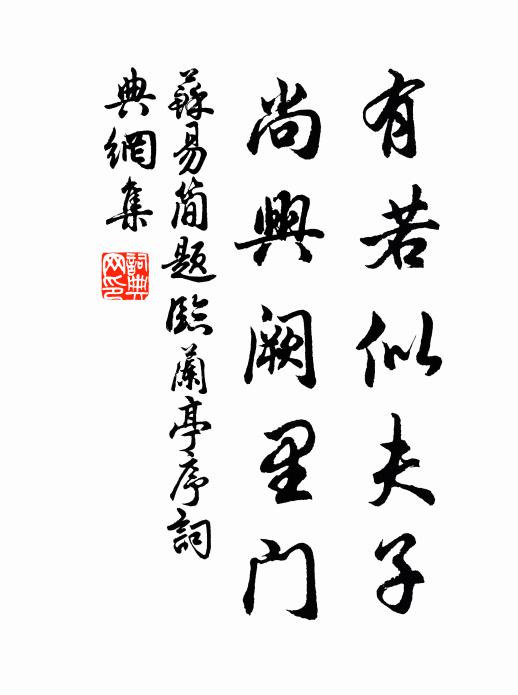 有若似夫子
尚興阙里门
蘇易简题臨蘭亭序詞
典網集
詞典
网印